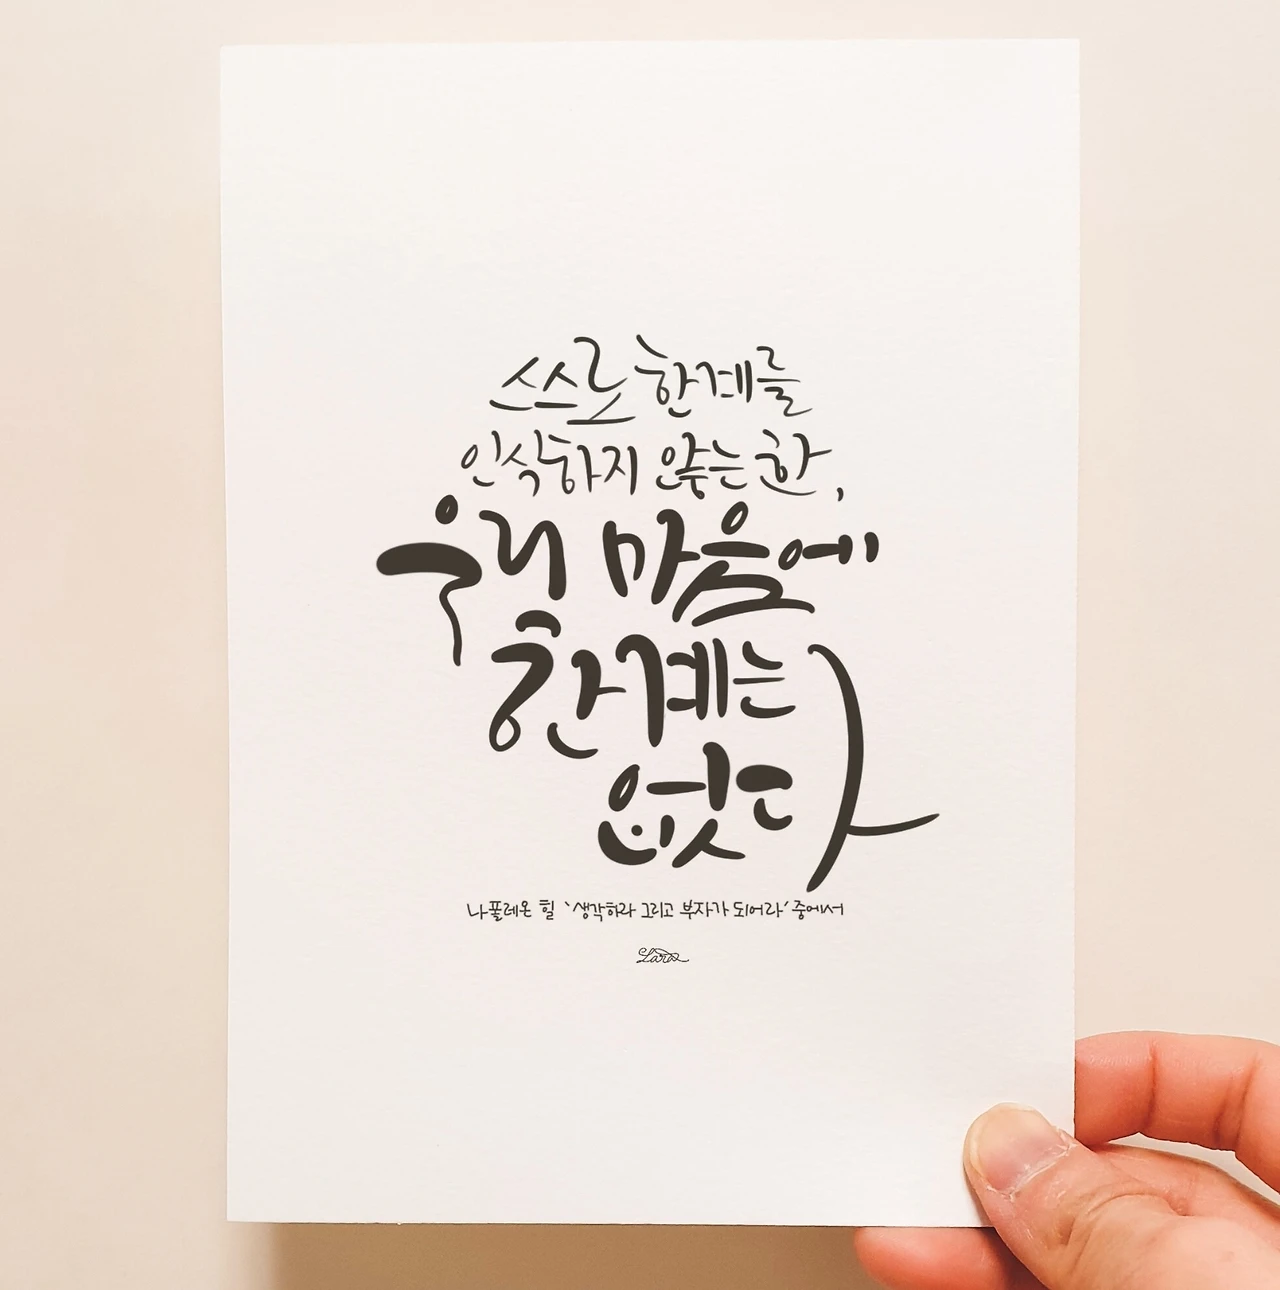 스스로 한계를
인식하지 않는 한,
우리 마음에
한계는
없다
나폴레온 힐 '생각하라 그리고 부자가 되어라' 중에서
Lara